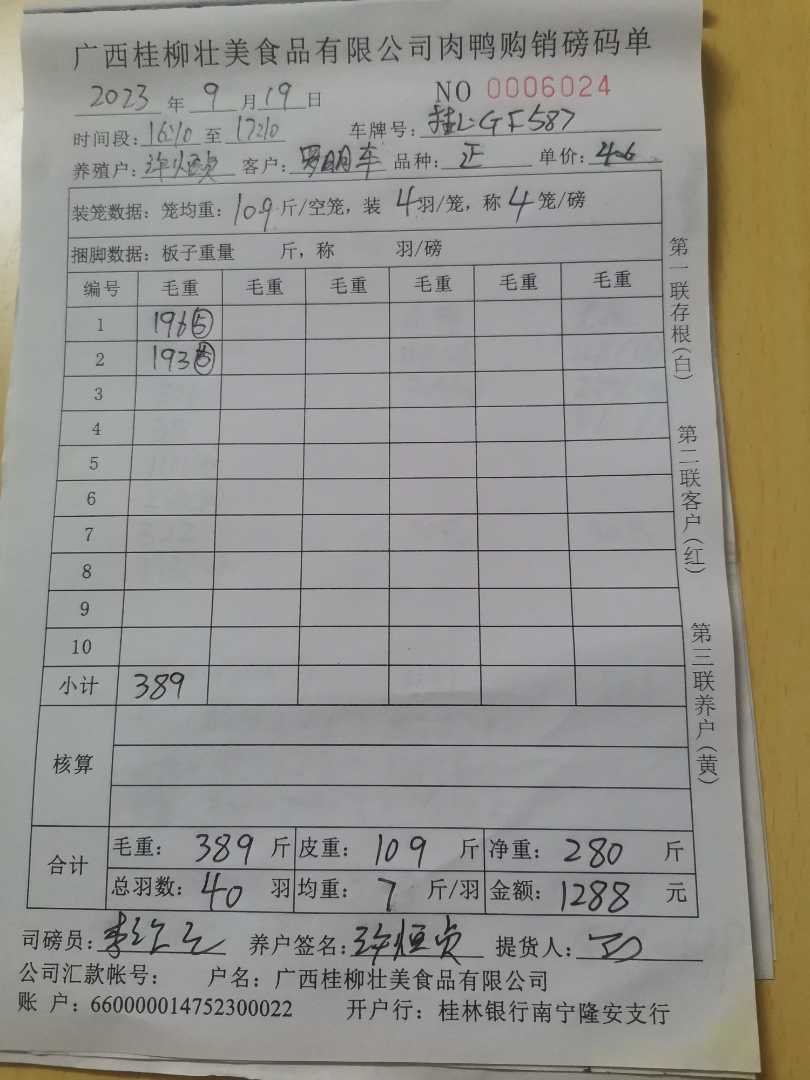 广西桂柳壮美食品有限公司肉鸭购销磅码单
2023 年 9 月 19 日 NO 0006024
时间段: 16:10 至 17:10 车牌号: 桂L·GF587
养殖户: 许恒贞 客户: 罗明车 品种: 正 单价:
装笼数据: 笼均重: 109 斤/空笼, 装 4 羽/笼, 称 4 笼/磅
捆脚数据: 板子重量 斤, 称 羽/磅
编号 毛重 毛重 毛重 毛重 毛重 毛重
1 196 ⑤
2 193
3
4
5
6
7
8
9
10
小计 389
核算
合计 毛重: 389 斤 皮重: 109 斤 净重: 280 斤
总羽数: 40 羽 均重: 7 斤/羽 金额: 1288 元
司磅员: 养户签名: 许恒贞 提货人:
公司汇款帐号: 户名: 广西桂柳壮美食品有限公司
账 户: 660000014752300022 开户行: 桂林银行南宁隆安支行
第一联存根(白)
第二联客户(红)
第三联养户(黄)